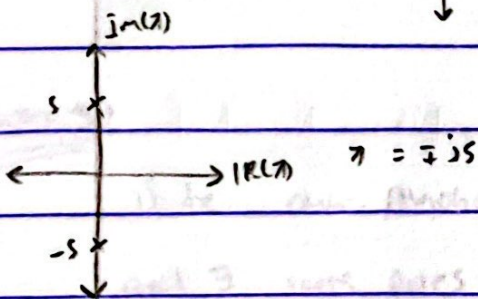 Im(λ)
5
IR(λ) λ = ∓ j5
-5